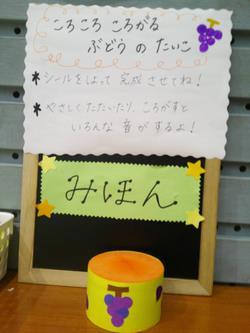 ころころ ころがる
ぶどう の たいこ
*シールをはって 完成 させてね!
*やさしくたたいたり、ころがすと
いろんな 音 が するよ!
みほん